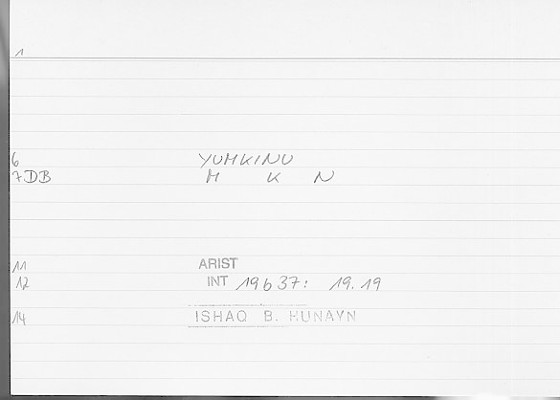 1
6 YUMKINU
7DB M K N
11 ARIST
12 INT 19b37: 19.19
14 ISHAQ B. HUNAYN